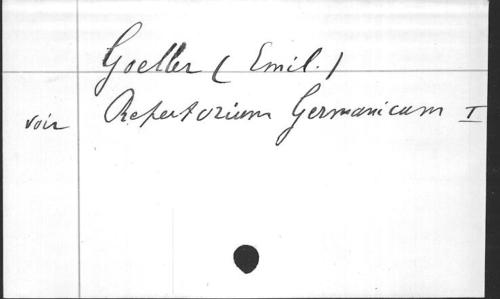 Goeller (Emil.)
voir Repertorium Germanicum I